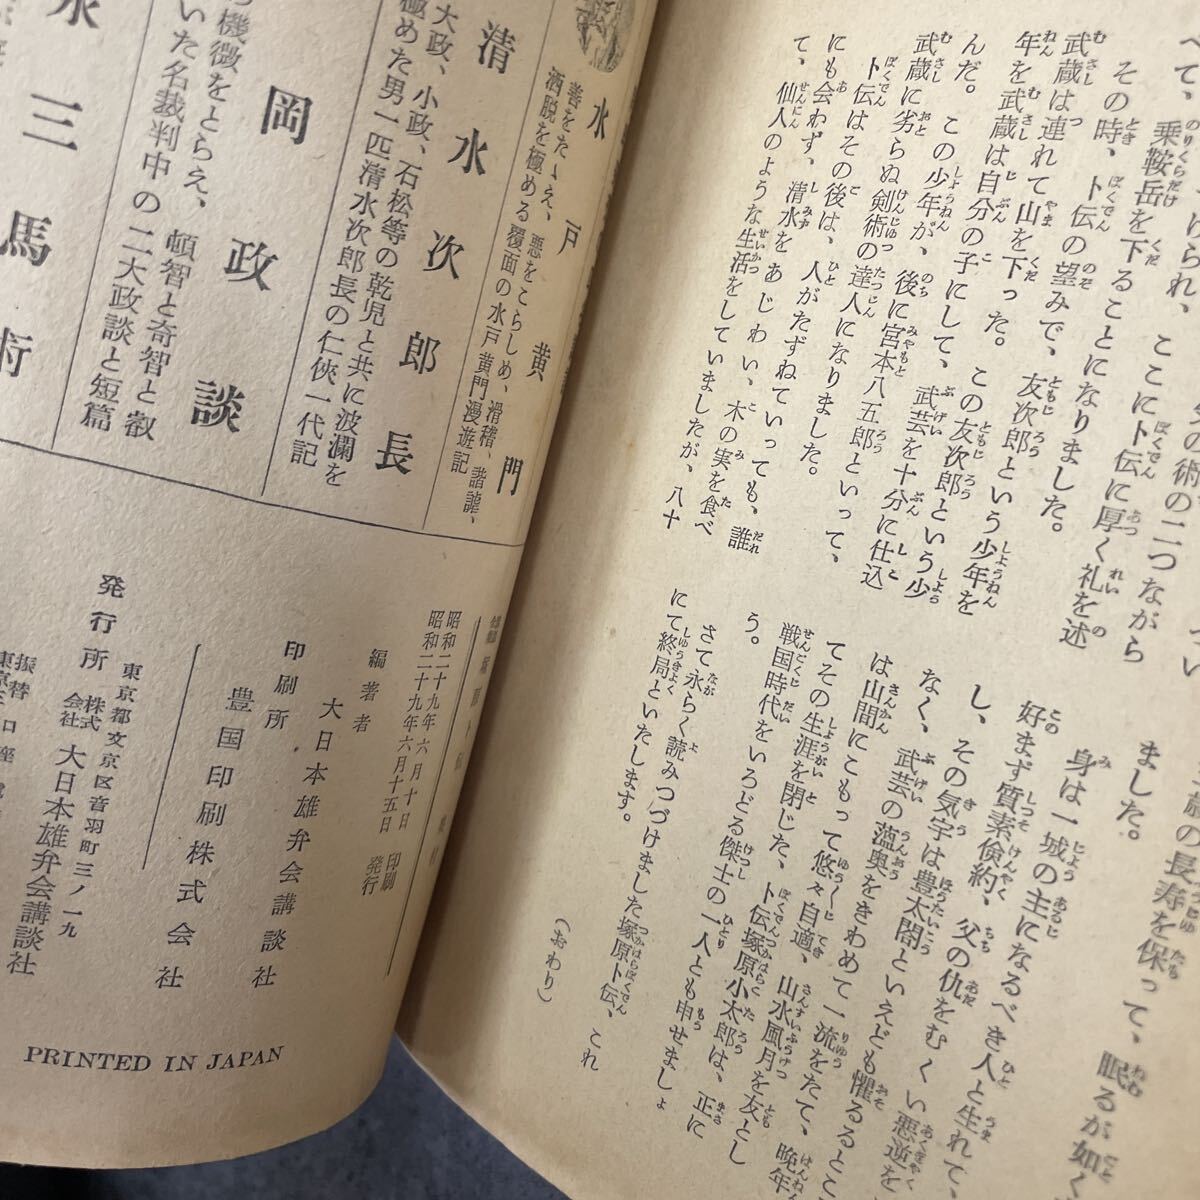 べて、乗鞍岳を下ることになりました。
その時、卜伝の望みで、友次郎という少年を
武蔵は連れて山を下った。この友次郎という少
年を武蔵は自分の子にして、武芸を十分に仕込
んだ。この少年が、後に宮本八五郎といって、
武蔵に劣らぬ剣術の達人になりました。
卜伝はその後は、人がたずねていっても、誰
にも会わず、清水をあじわい、木の実を食べ
て、仙人のような生活をしていましたが、八十
の長寿を保って、眠るが如く
ました。
身は一城の主になるべき人と生れて、
好まず質素倹約、父の仇をむくい悪逆を
し、その気宇は豊太閤といえども懼るるとこ
なく、武芸の薀奥をきわめて一流をたて、晩年
は山間にこもって悠々自適、山水風月を友とし
てその生涯を閉じた、卜伝塚原小太郎は、正に
戦国時代をいろどる傑士の一人とも申せましょ
う。
さて永らく読みつづけました塚原卜伝、これ
にて終局といたします。
（おわり）
水戸黄門
善をたゝえ、悪をこらしめ、滑稽、諧謔、
洒脱を極める覆面の水戸黄門漫遊記
清水次郎長
大政、小政、石松等の乾児と共に波瀾を
極めた男一匹清水次郎長の仁俠一代記
岡政談
機微をとらえ、頓智と奇智と叡
いた名裁判中の二大政談と短篇
三馬術
昭和二十九年六月十日 印刷
昭和二十九年六月十五日 発行
編著者
大日本雄弁会講談社
印刷所
豊国印刷株式会社
東京都文京区音羽町三ノ一九
発行所 株式会社 大日本雄弁会講談社
PRINTED IN JAPAN